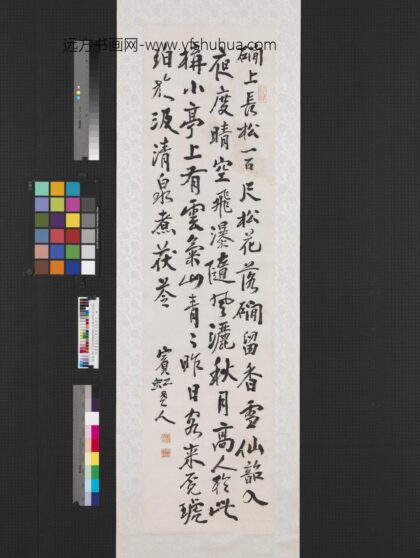 远方书画网-www.yfshuhua.com
磵上長松一百尺松花落磵留香雪仙韶入
夜度晴空飛瀑隨風灑秋月高人於此
構小亭上有雲氣山青〻昨日客來覓琥
珀旋汲清泉煮茯苓
賓虹老人